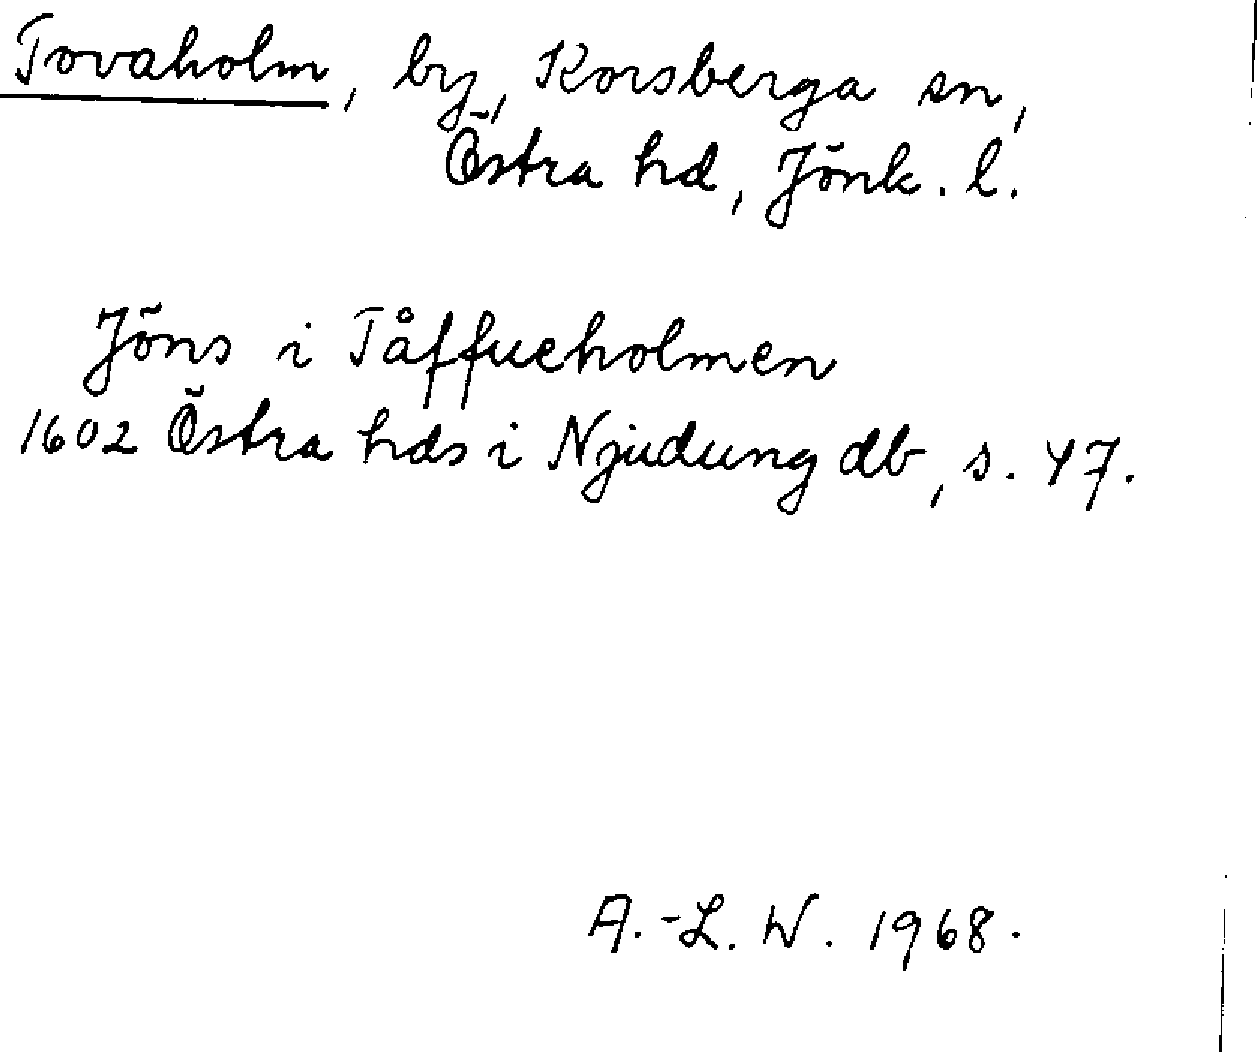 Tovaholm, by, Korsberga sn,
Östra hd, Jönk. l.
Jöns i Tåffueholmen
1602 Östra hds i Njudung db, s. 47.
A.-L. W. 1968.